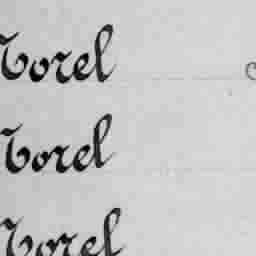 Torel
Torel
Torel